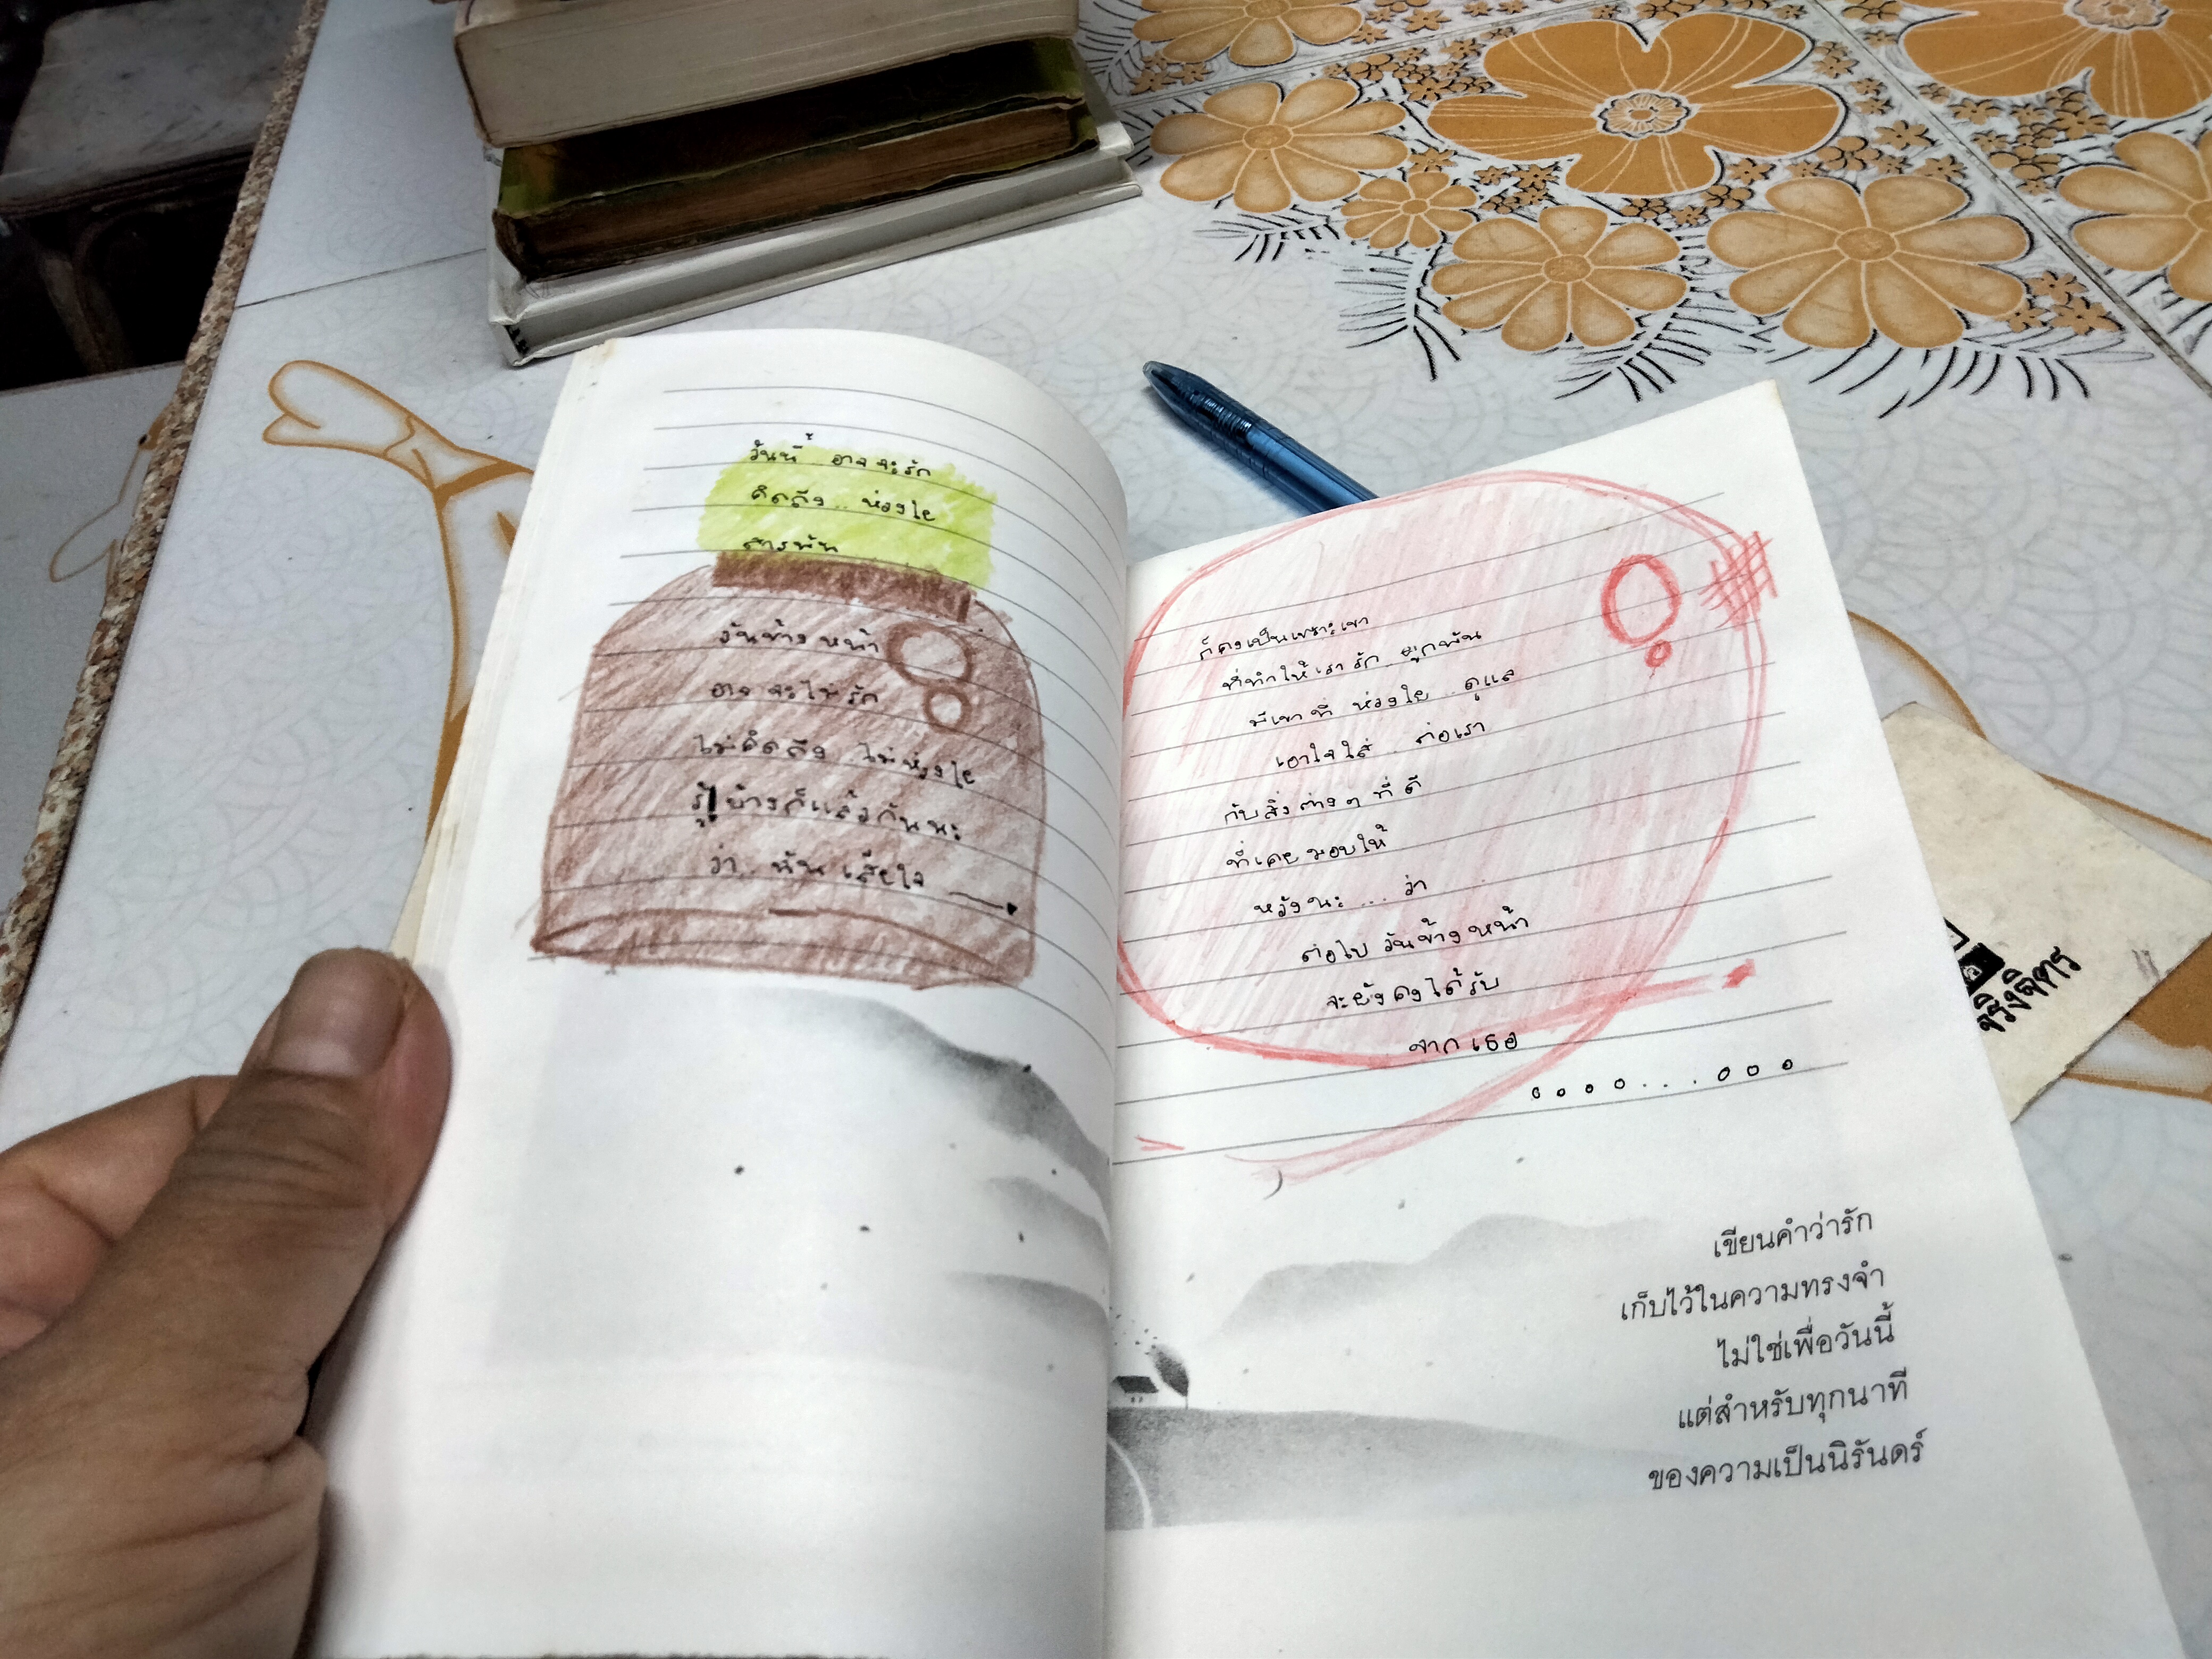 วันนี้ อาจจะรัก
คิดถึง.. ห่วงใย
สารพัน
วันข้างหน้า
อาจจะไม่รัก
ไม่คิดถึง ไม่ห่วงใย
รู้บ้างก็แล้วกันนะ
ว่า.. ฉัน เสียใจ
ก็คงเป็นเพราะเขา
ที่ทำให้เรารัก ผูกพัน
มีเขาที่ ห่วงใย ดูแล
เอาใจใส่ .. ต่อเรา
กับสิ่งต่างๆ ที่ ดี
ที่เคยมอบให้
หวังนะ ... ว่า
ต่อไป วันข้างหน้า
จะยังคงได้รับ
จาก เธอ
เขียนคำว่ารัก
เก็บไว้ในความทรงจำ
ไม่ใช่เพื่อวันนี้
แต่สำหรับทุกนาที
ของความเป็นนิรันดร์
จริงจิตร